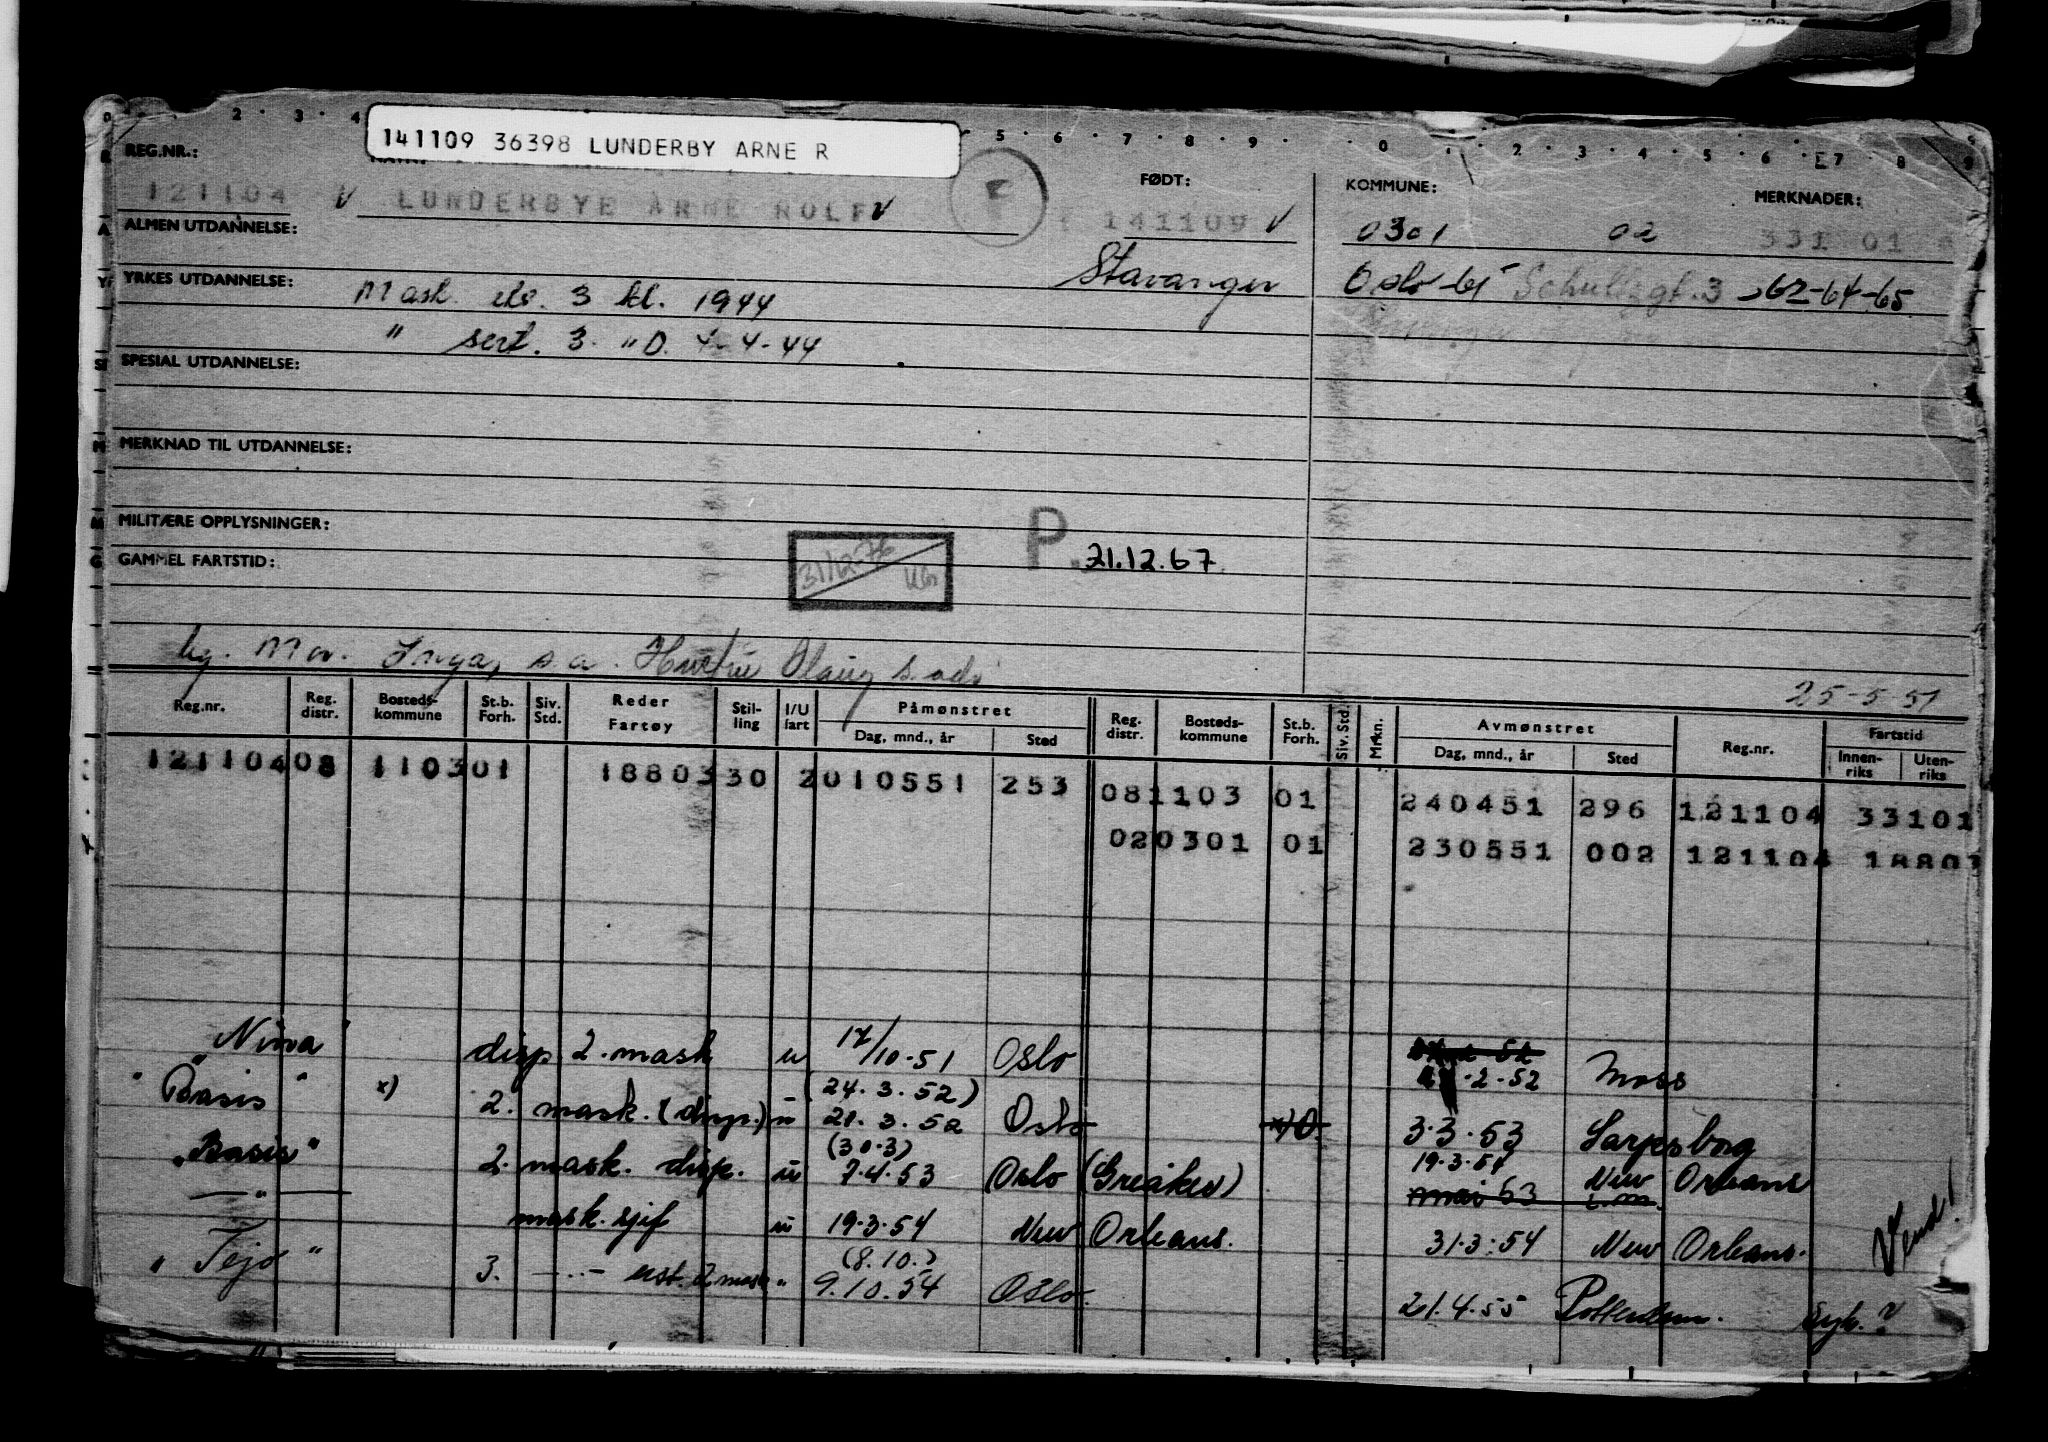 141109 36398 LUNDERBY ARNE R
REG.NR.: FØDT: KOMMUNE: MERKNADER:
121104 LUNDERBYE ARNE ROLF 141109 0301 02 331 01
ALMEN UTDANNELSE:
YRKES UTDANNELSE: Mask. 3 kl. 1944 Stavanger Oslo -61 Schultzgt. 3 -62-64-65
" sert. 3. "D. 4-4-44
SPESIAL UTDANNELSE:
MERKNAD TIL UTDANNELSE:
MILITÆRE OPPLYSNINGER:
GAMMEL FARTSTID: 31/12-76 P. 21.12.67
Mor. Inga, s.a. Hustru Olaug s. adr.
25-5-51
Reg.nr. Reg. distr. Bosteds-kommune St.b. Forh. Siv. Std. Reder Fartøy Stil-ling I/U fart Påmønstret Dag, mnd., år Sted Reg. distr. Bosteds-kommune St.b. Forh. Siv. Std. Mrkn. Avmønstret Dag, mnd., år Sted Reg.nr. Fartstid Innen-riks Uten-riks
121104 08 1103 01 1880 330 2 010551 253 08 1103 01 240451 296 121104 33101
02 0301 01 230551 002 121104 18803
"Nina" disp. 2. mask u 17/10-51 Oslo -2-52 Moss
"Basis" x) 2. mask. (disp.) u (24.3.52) 21.3.52 Oslo x) O. 3.3.53 Sarpsborg
"Basis" 2. mask. disp. u (30.3) 7.4.53 Oslo (Greåker) 19.3.54 New Orleans
mai 53
— " — mask. sjef u 19.3.54 New Orleans. 31.3.54 New Orleans.
Vend!
"Tejo" 3. —..— ast. 2 mask " (8.10.) 9.10.54 Oslo. 21.4.55 Rotterdam. Syk. ?